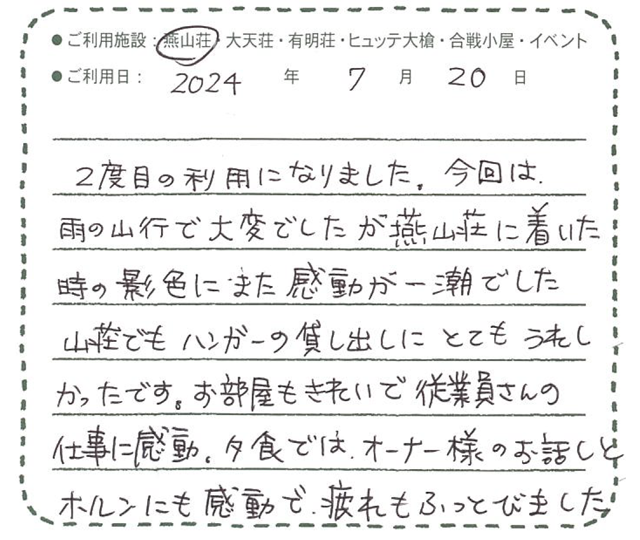 ● ご利用施設：燕山荘・大天荘・有明荘・ヒュッテ大槍・合戦小屋・イベント
● ご利用日： 2024 年 7 月 20 日
2度目の利用になりました。今回は、
雨の山行で大変でしたが燕山荘に着いた
時の影色にまた感動が一潮でした
山荘でもハンガーの貸し出しにとてもうれし
かったです。お部屋もきれいで従業員さんの
仕事に感動。夕食では、オーナー様のお話しと
ホルンにも感動で、疲れもふっとびました